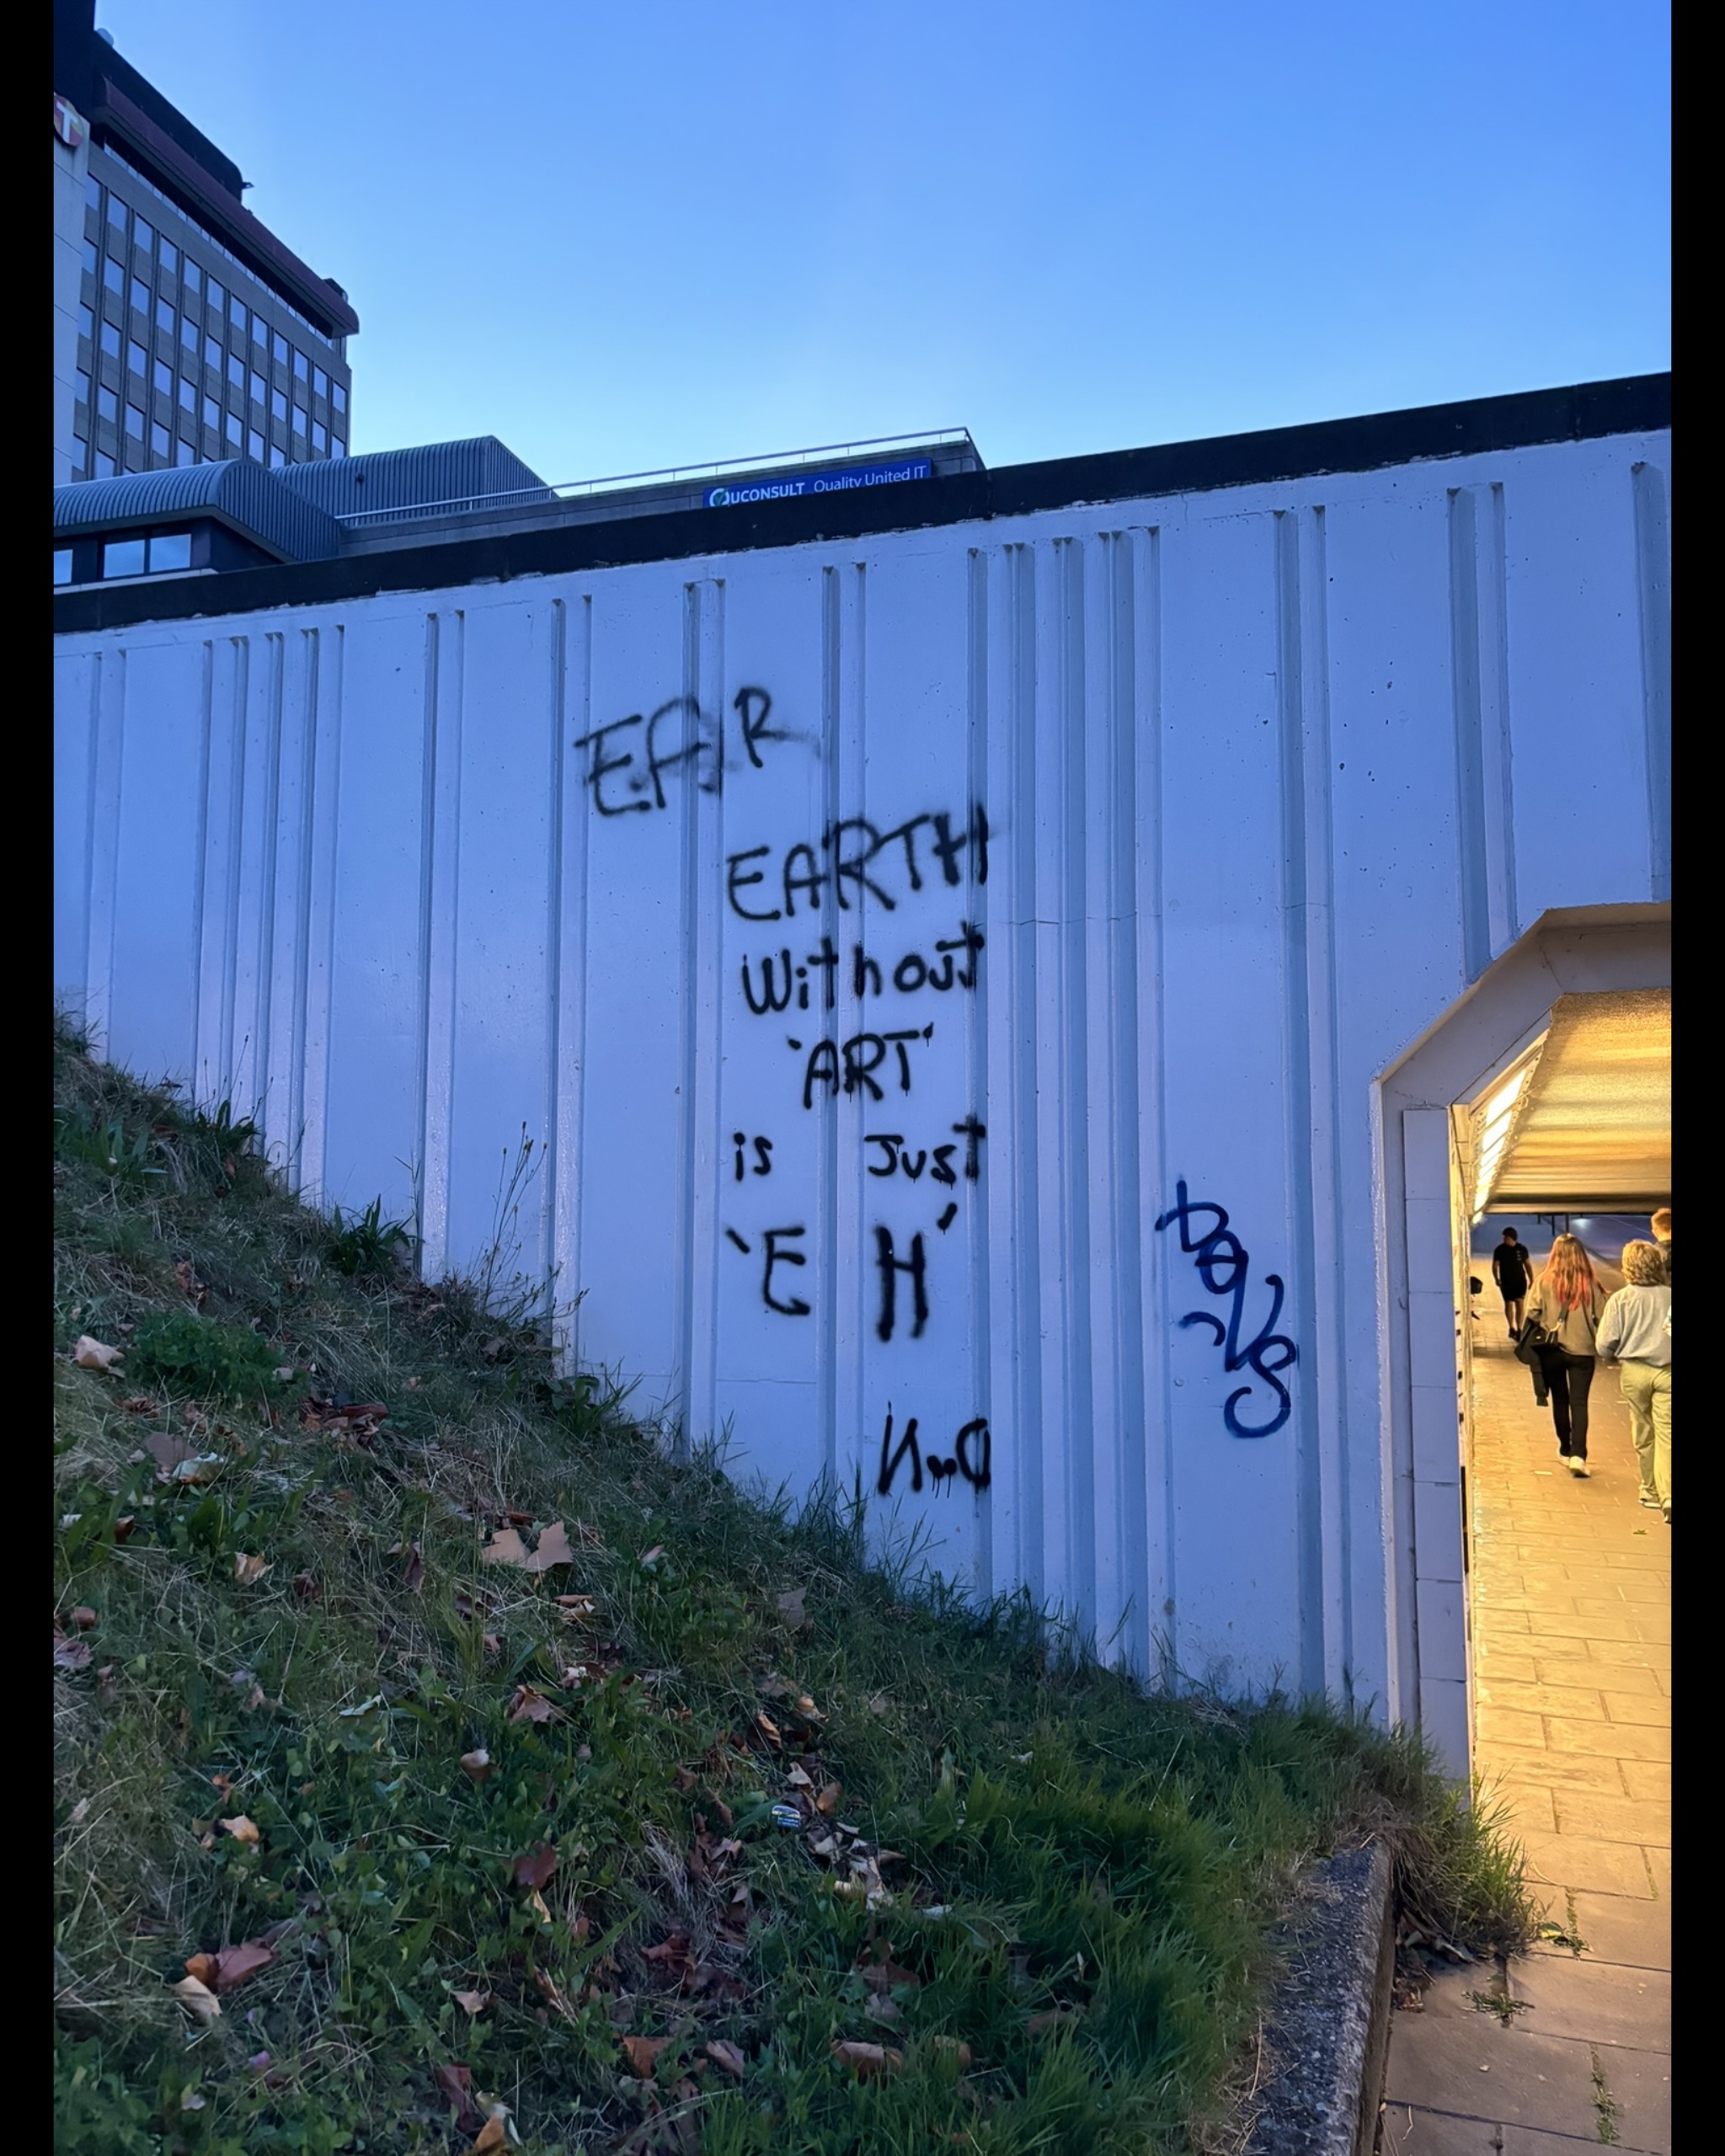 T
QUCONSULT Quality United IT
EA/R
EARTH
Without
'ART'
is Just
'E H'